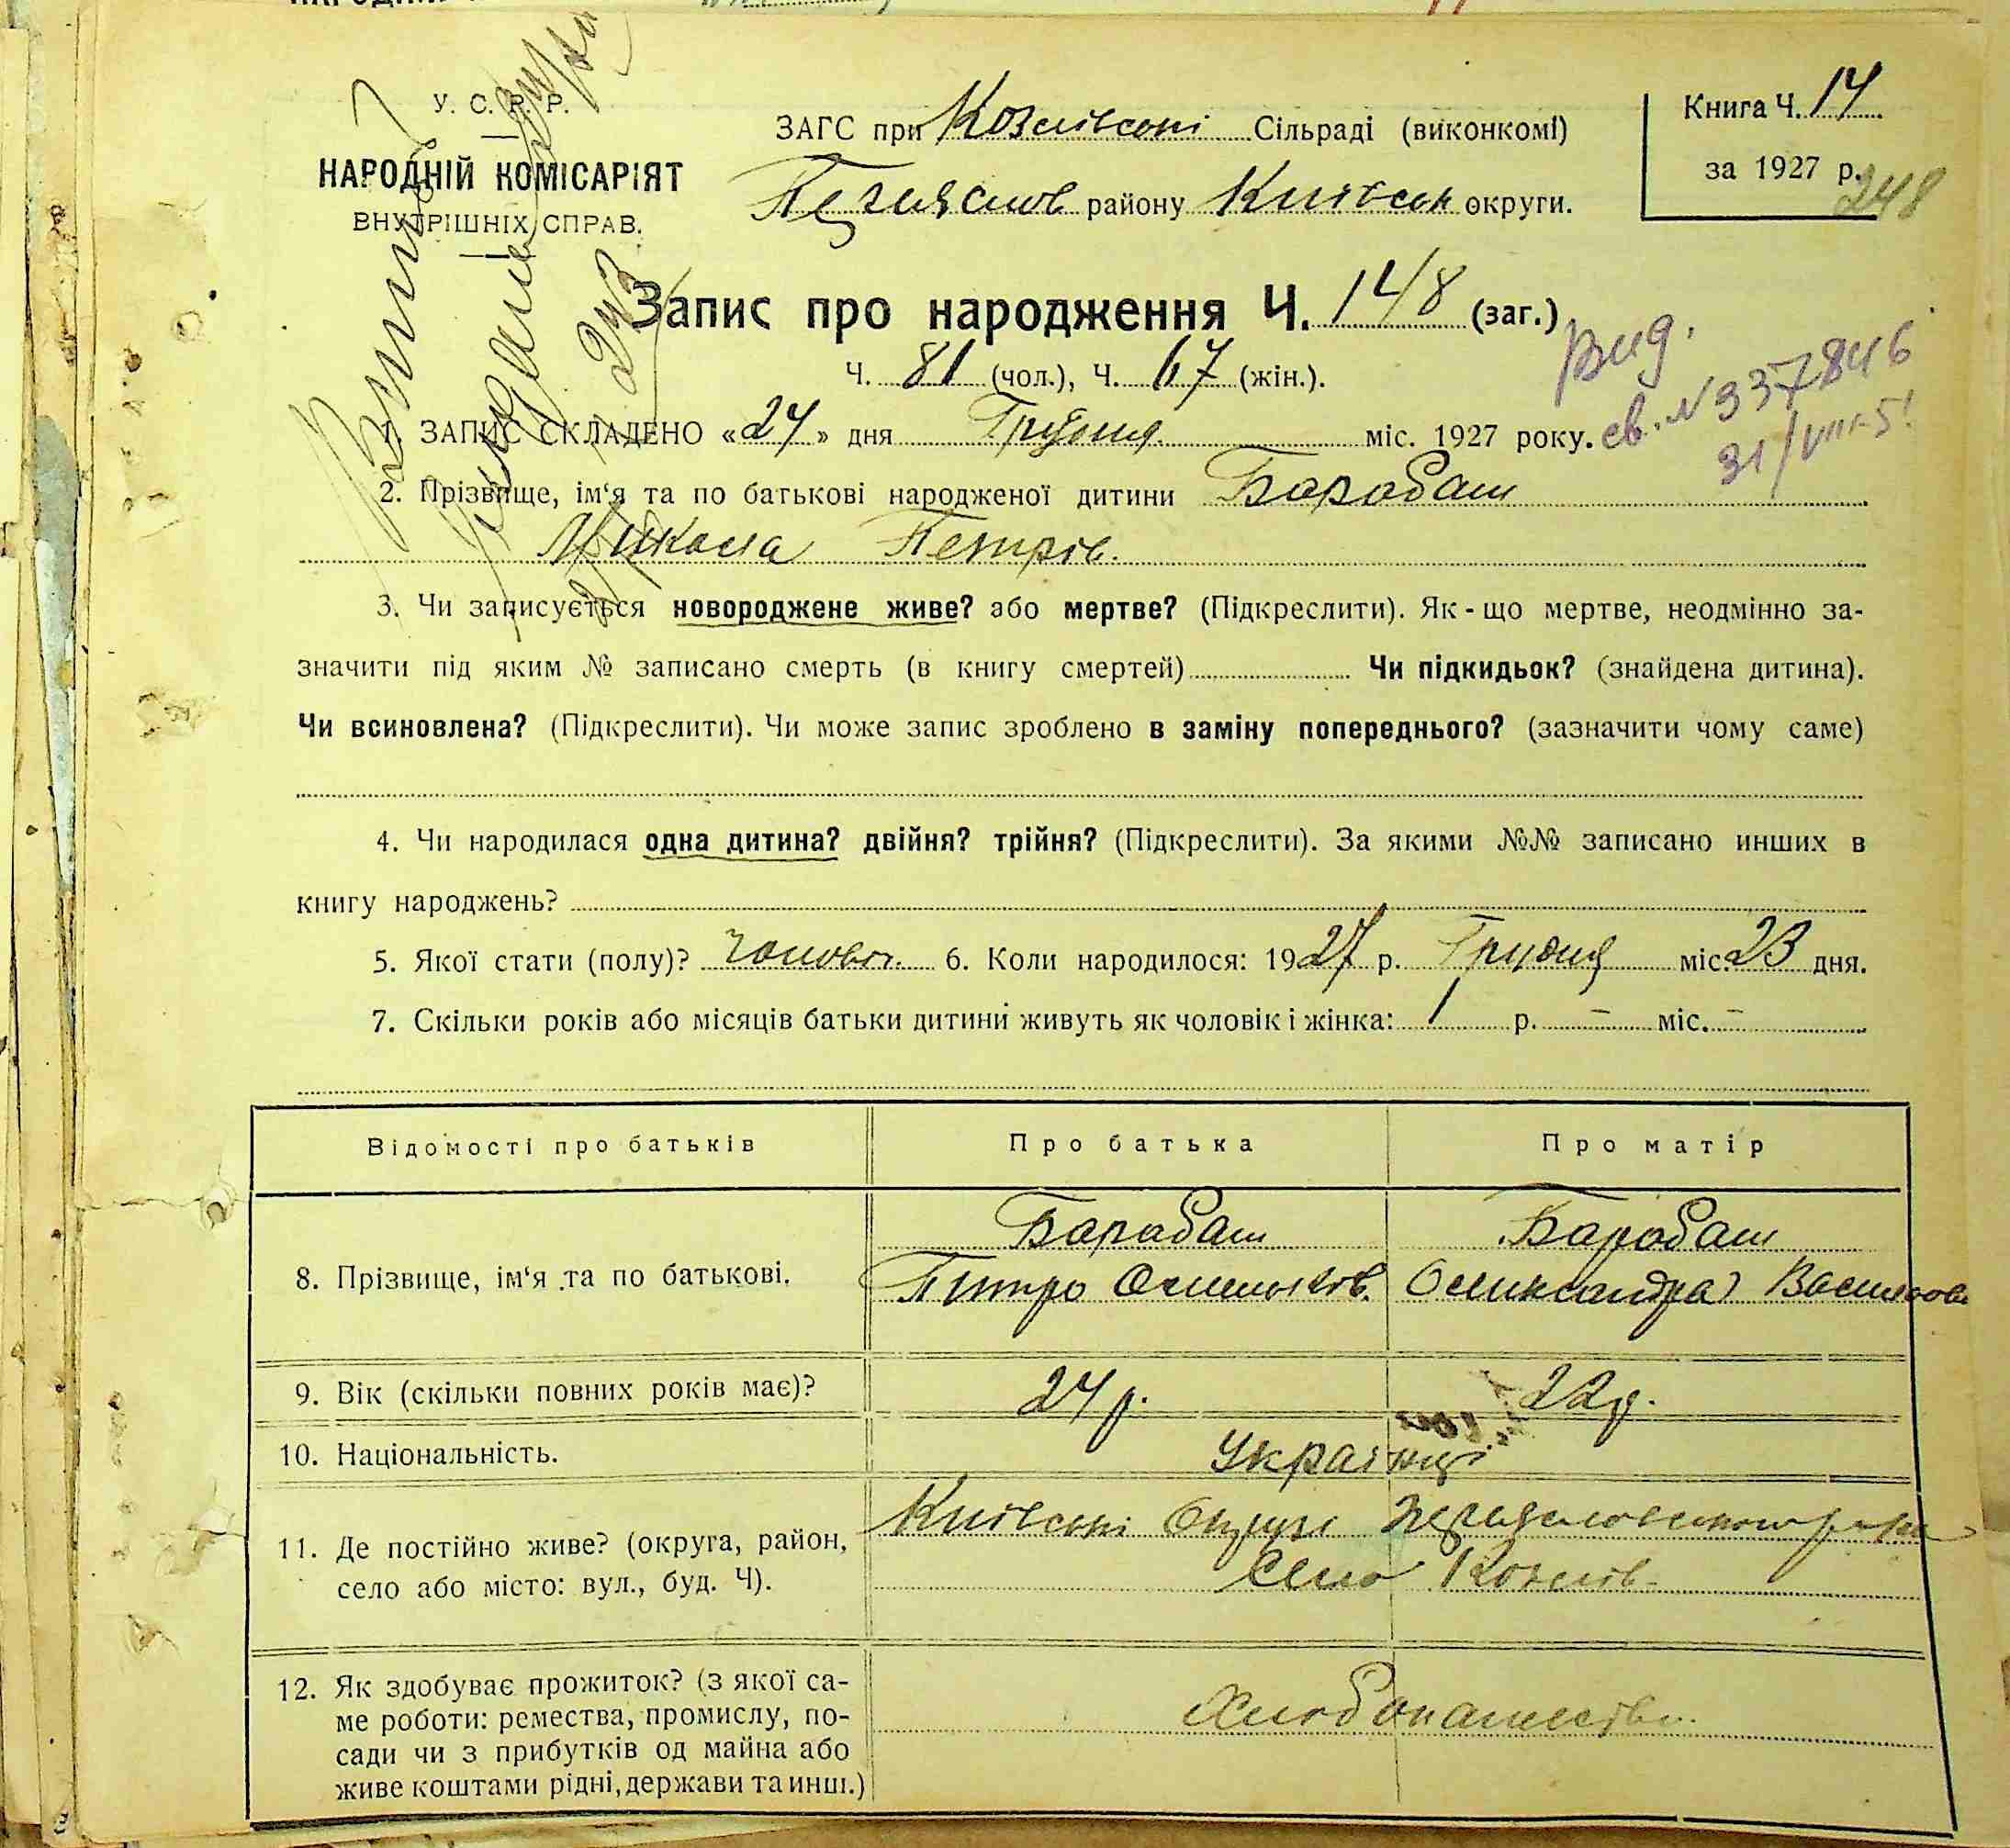 У. С. Р. Р.
НАРОДНІЙ КОМІСАРІЯТ
ВНУТРІШНІХ СПРАВ.
ЗАГС при Козлівські Сільраді (виконкомі)
району Київськ округи.
Книга Ч. 14
за 1927 р.
248
Запис про народження Ч. 148 (заг.)
Ч. 81 (чол.), Ч. 67 (жін.).
Вид.
св. № 337846
1. ЗАПИС СКЛАДЕНО «24» дня Грудня міс. 1927 року.
2. Прізвище, ім‘я та по батькові народженої дитини Барабаш
Микола Петрів.
3. Чи записується новороджене живе? або мертве? (Підкреслити). Як-що мертве, неодмінно за-
значити під яким № записано смерть (в книгу смертей) Чи підкидьок? (знайдена дитина).
Чи всиновлена? (Підкреслити). Чи може запис зроблено в заміну попереднього? (зазначити чому саме)
4. Чи народилася одна дитина? двійня? трійня? (Підкреслити). За якими №№ записано инших в
книгу народжень?
5. Якої стати (полу)? чоловіч. 6. Коли народилося: 1927 р. Грудня міс. 23 дня.
7. Скільки років або місяців батьки дитини живуть як чоловік і жінка: 1 р. - міс. -
Відомості про батьків Про батька Про матір
8. Прізвище, ім‘я та по батькові.
Барабаш Барабаш
Петро Олександра
9. Вік (скільки повних років має)? 24 р. 22 р.
10. Національність. Українці
11. Де постійно живе? (округа, район,
село або місто: вул., буд. Ч).
Київські Окрузі
Село Козлів
12. Як здобуває прожиток? (з якої са-
ме роботи: ремества, промислу, по-
сади чи з прибутків од майна або
живе коштами рідні, держави та инш.)